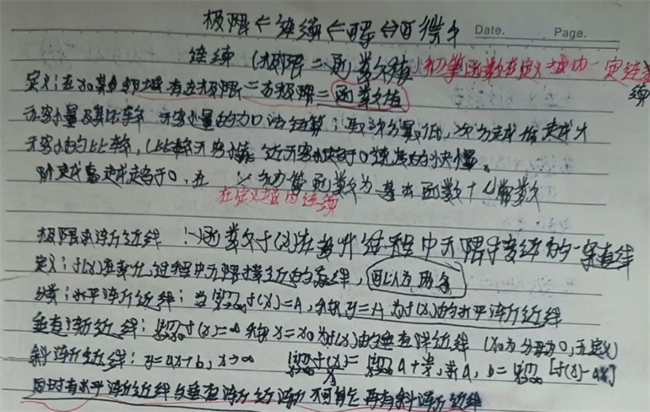 极限←连续←可导⇔可微
Date. Page.
连续 (极限 = 函数值) 初等函数在定义域内一定连续
定义:在x0某邻域 有左极限=右极限=函数值
无穷小量及其比较 无穷小量的加法运算:取次方最低,次方越低越大
无穷小的比较,(比较无穷小 趋于0速度的快慢。
阶越高越趋于0,五 初等函数为基本函数+常数
在定义域内连续
极限求渐近线 :函数f(x)在变化过程中无限接近的一条直线
定义:f(x)在变化过程中无限接近的直线,可以有两条
分类:水平渐近线:当lim f(x)=A,则称y=A为f(x)的水平渐近线
垂直渐近线:lim f(x)=∞ 则称x=x0为f(x)的垂直渐近线 (x0为分母为0,无定义)
斜渐近线:y=ax+b,x→∞ lim f(x)/x = lim a+b/x,求A,b=lim [f(x)-ax]
同时有水平渐近线与垂直渐近线 不可能再有斜渐近线